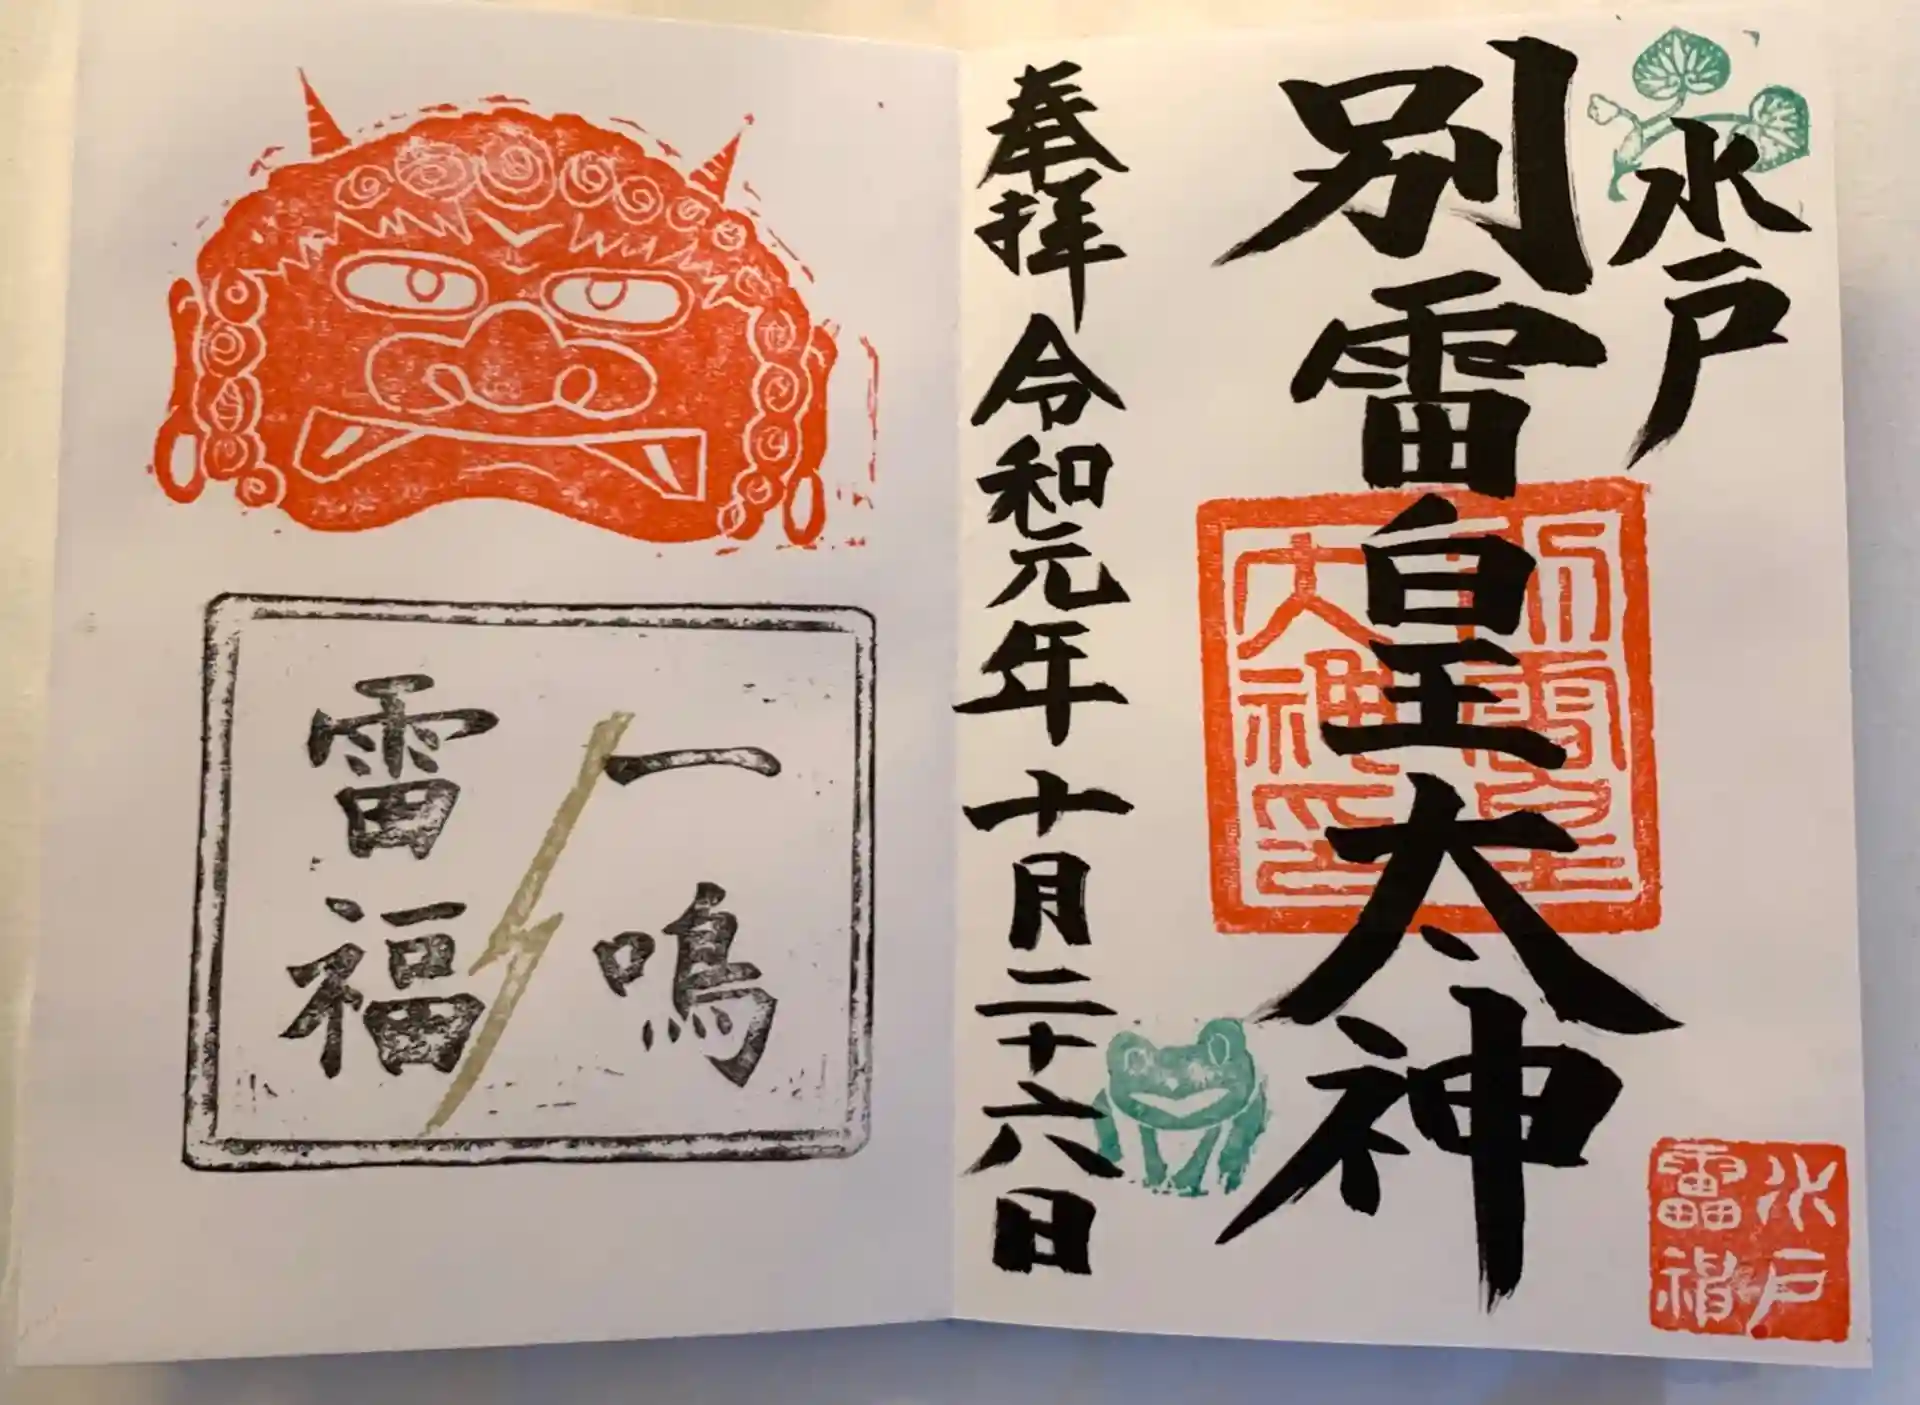 水戸
別雷皇太神
別雷皇
大神印
水戸
奉拝 令和元年十月二十六日
一鳴
雷福